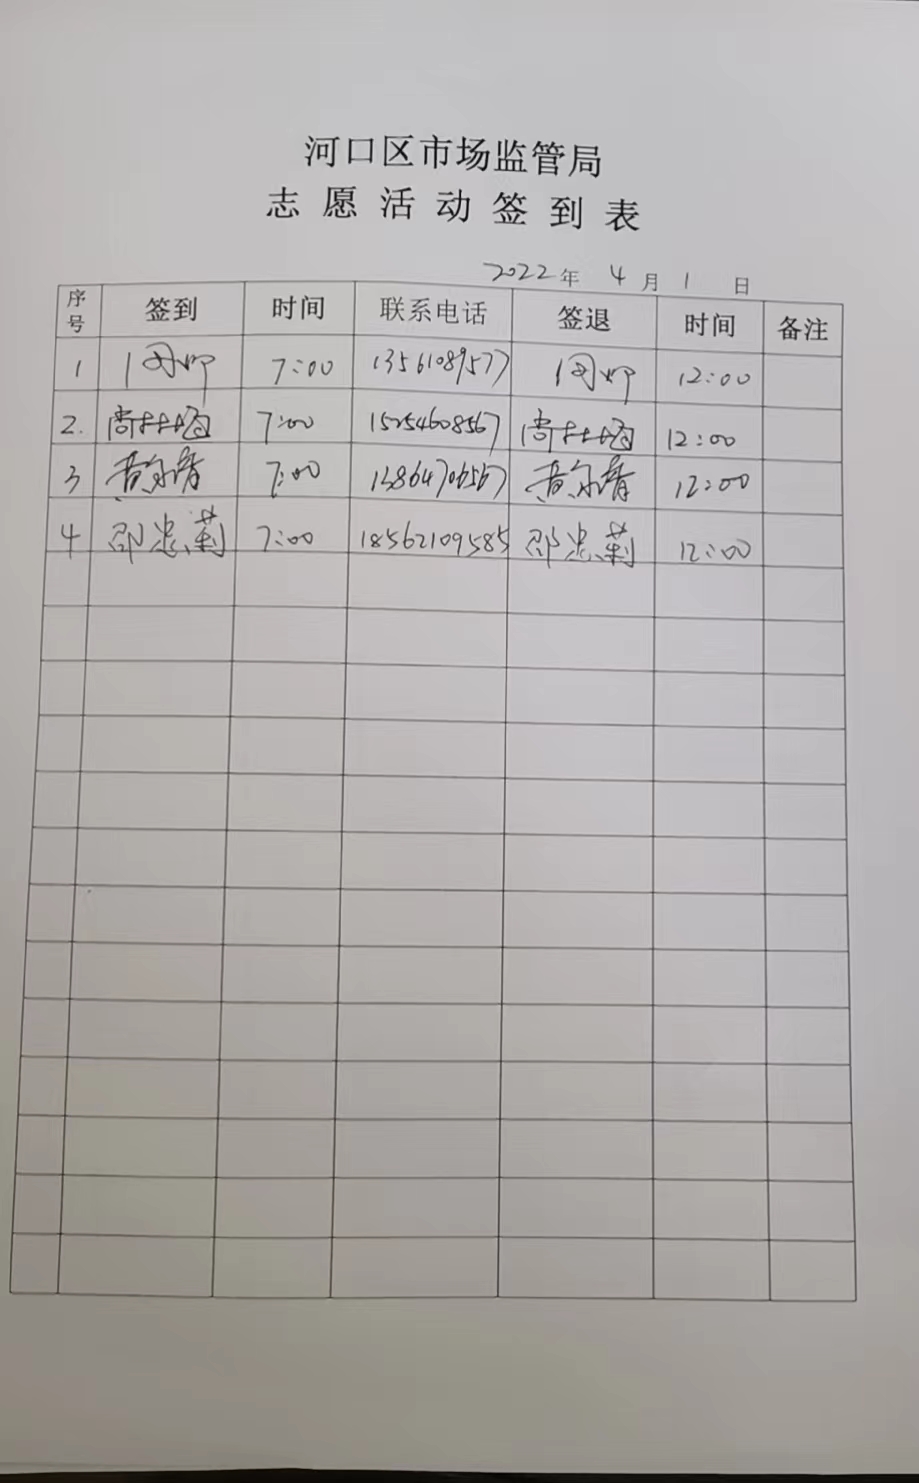 河口区市场监管局
志愿活动签到表
2022年 4月 1日
序号 签到 时间 联系电话 签退 时间 备注
1 7:00 13561089577 12:00
2. 7:00 15254608567 12:00
3 7:00 13864706567 12:00
4 邵忠莉 7:00 18562109585 邵忠莉 12:00